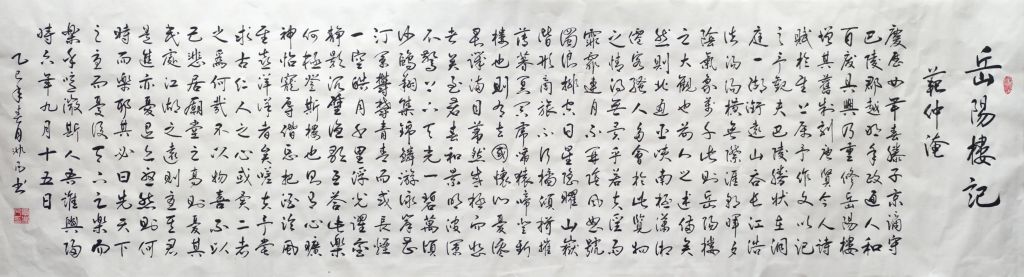 岳陽樓記
範仲淹
慶歷四年春滕子京謫守
巴陵郡越明年政通人和
百廢具興乃重修岳陽樓
增其舊制刻唐賢今人詩
賦於其上屬予作文以記
之予觀夫巴陵勝狀在洞
庭一湖銜遠山吞長江浩
浩湯湯橫無際涯朝暉夕
陰氣象萬千此則岳陽樓
之大觀也前人之述備矣
然則北通巫峽南極瀟湘
遷客騷人多會於此覽物
之情得無異乎若夫淫雨
霏霏連月不開陰風怒號
濁浪排空日星隱曜山嶽
潛形商旅不行檣傾楫摧
薄暮冥冥虎嘯猿啼登斯
樓也則有去國懷鄉憂讒
畏譏滿目蕭然感極而悲
者矣至若春和景明波瀾
不驚上下天光一碧萬頃
沙鷗翔集錦鱗游泳岸芷
汀蘭郁郁青青而或長煙
一空皓月千里浮光躍金
靜影沉璧漁歌互答此樂
何極登斯樓也則有心曠
神怡寵辱偕忘把酒臨風
其喜洋洋者矣嗟夫予嘗
求古仁人之心或異二者
之為何哉不以物喜不以
己悲居廟堂之高則憂其
民處江湖之遠則憂其君
是進亦憂退亦憂然則何
時而樂耶其必曰先天下
之憂而憂後天下之樂而
樂乎噫微斯人吾誰與歸
時六年九月十五日
乙巳年 月 書